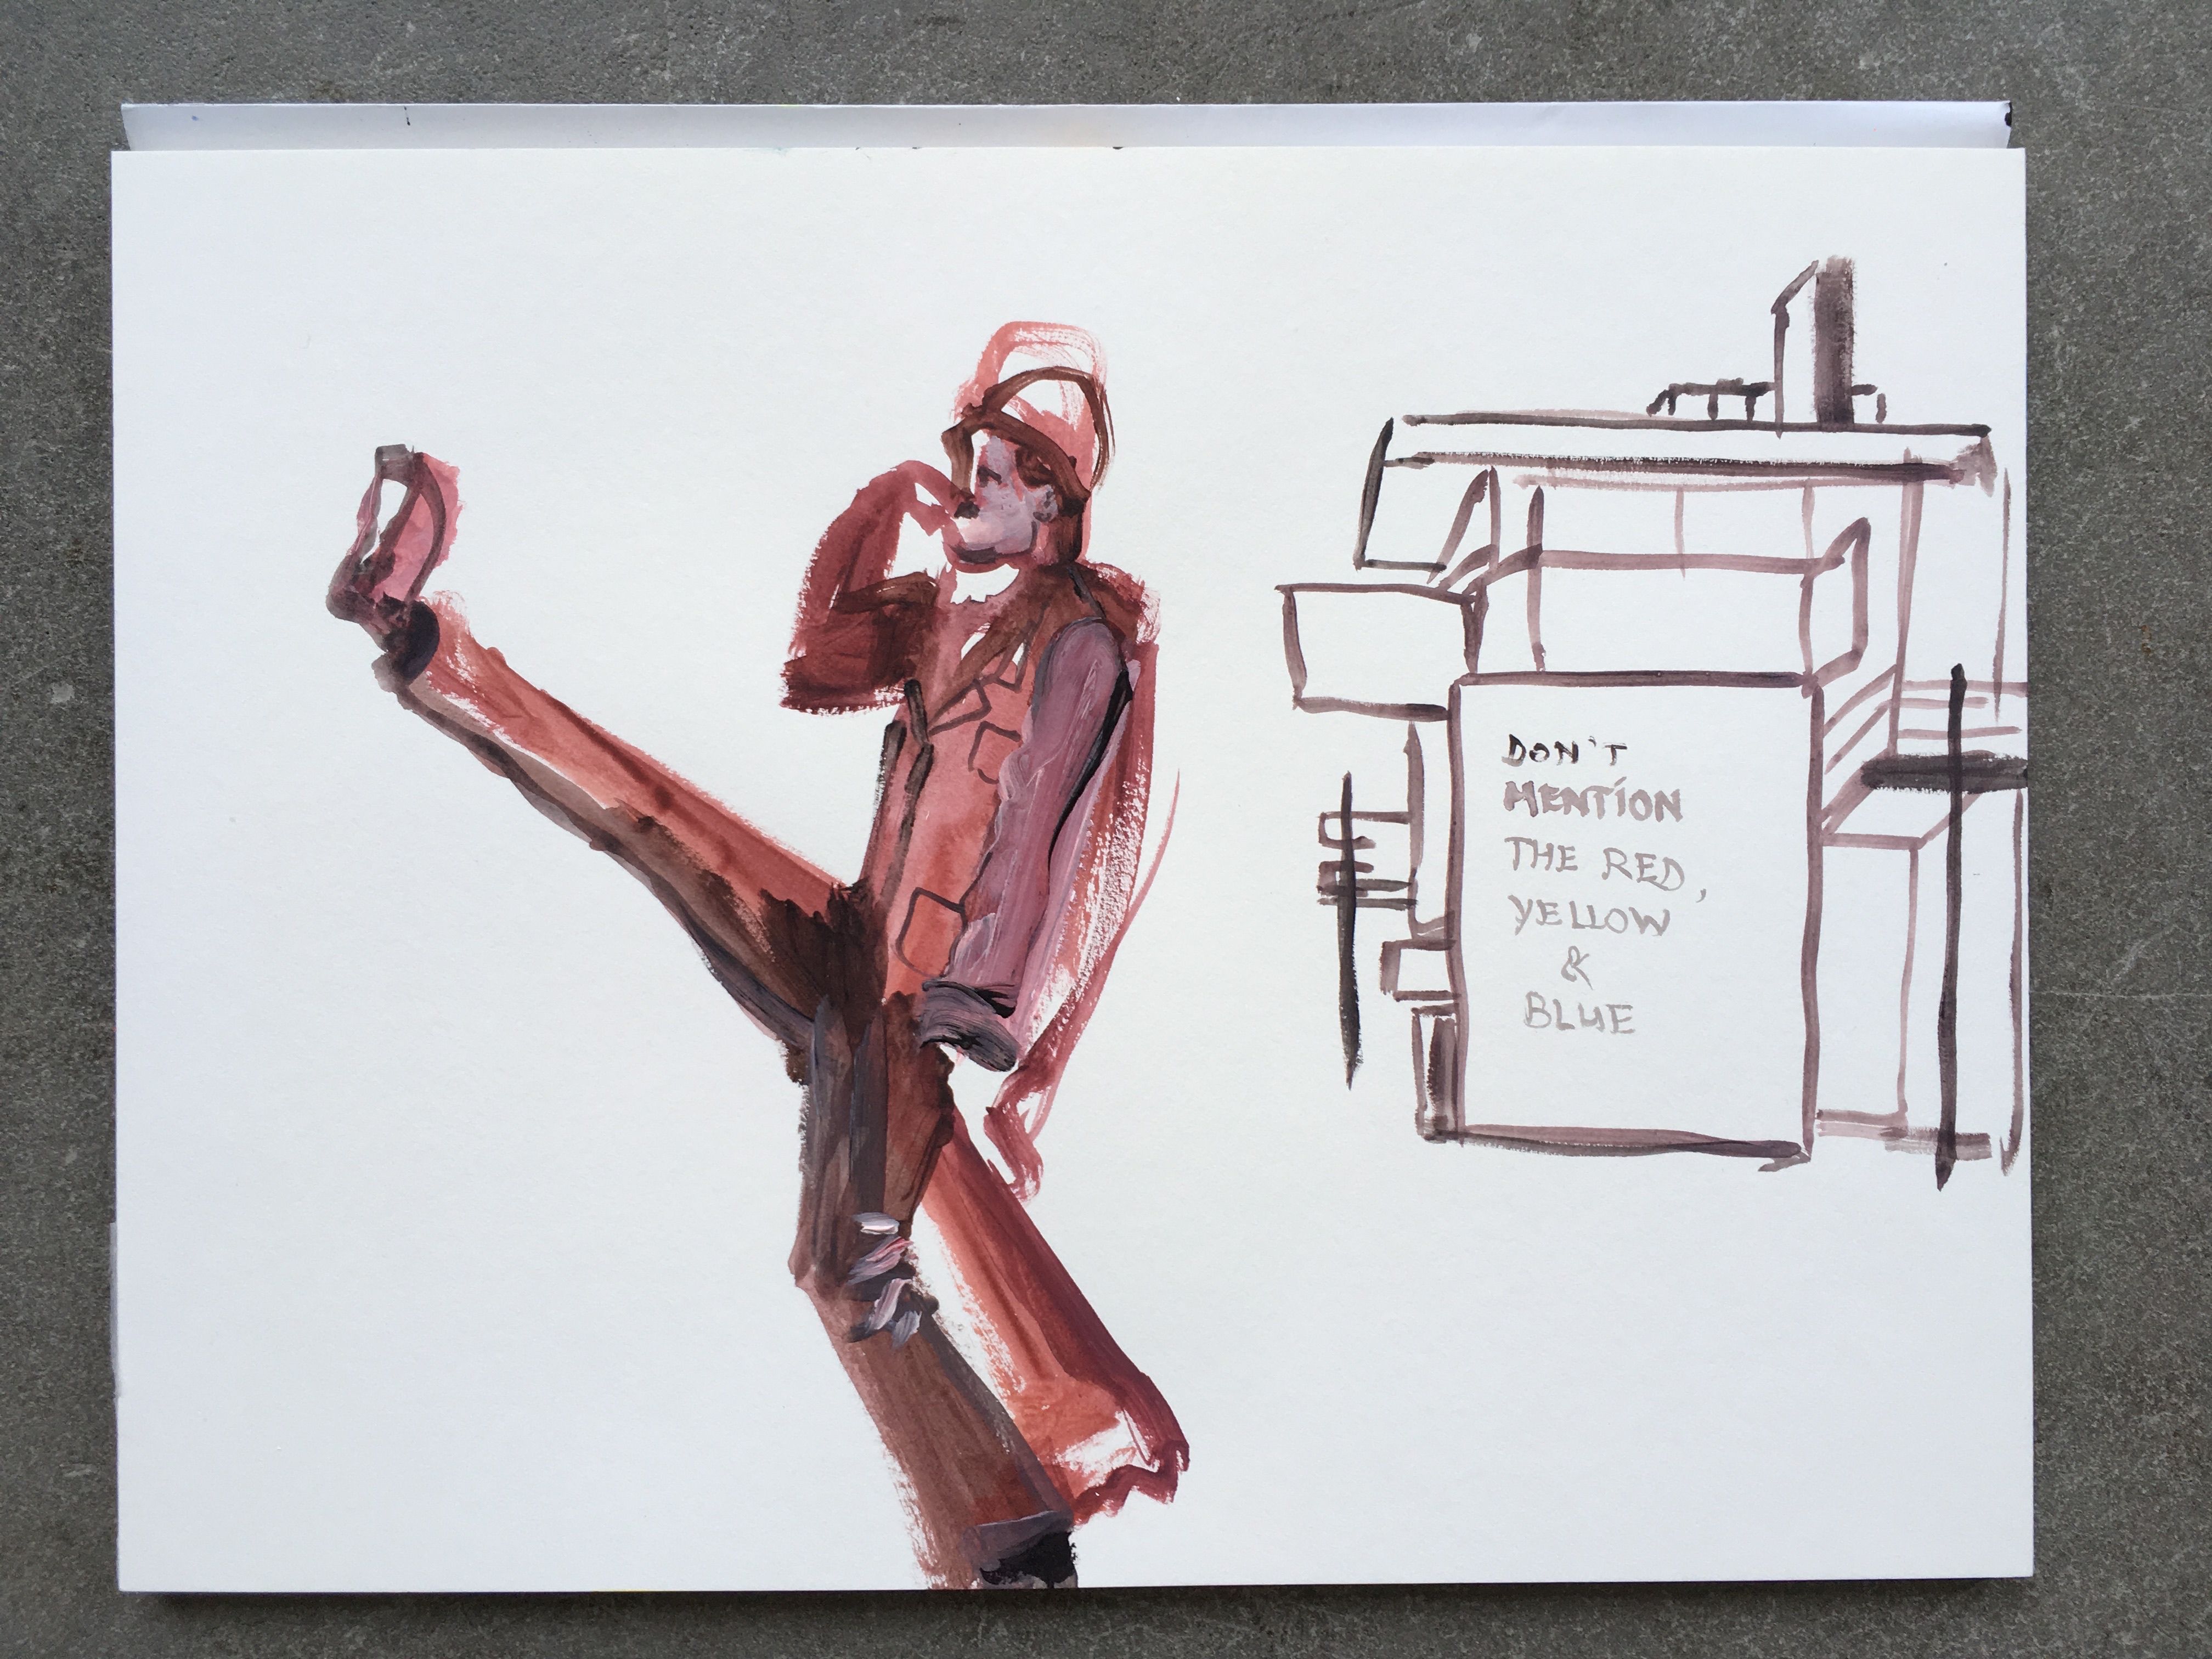 DON'T
MENTION
THE RED,
YELLOW
&
BLUE